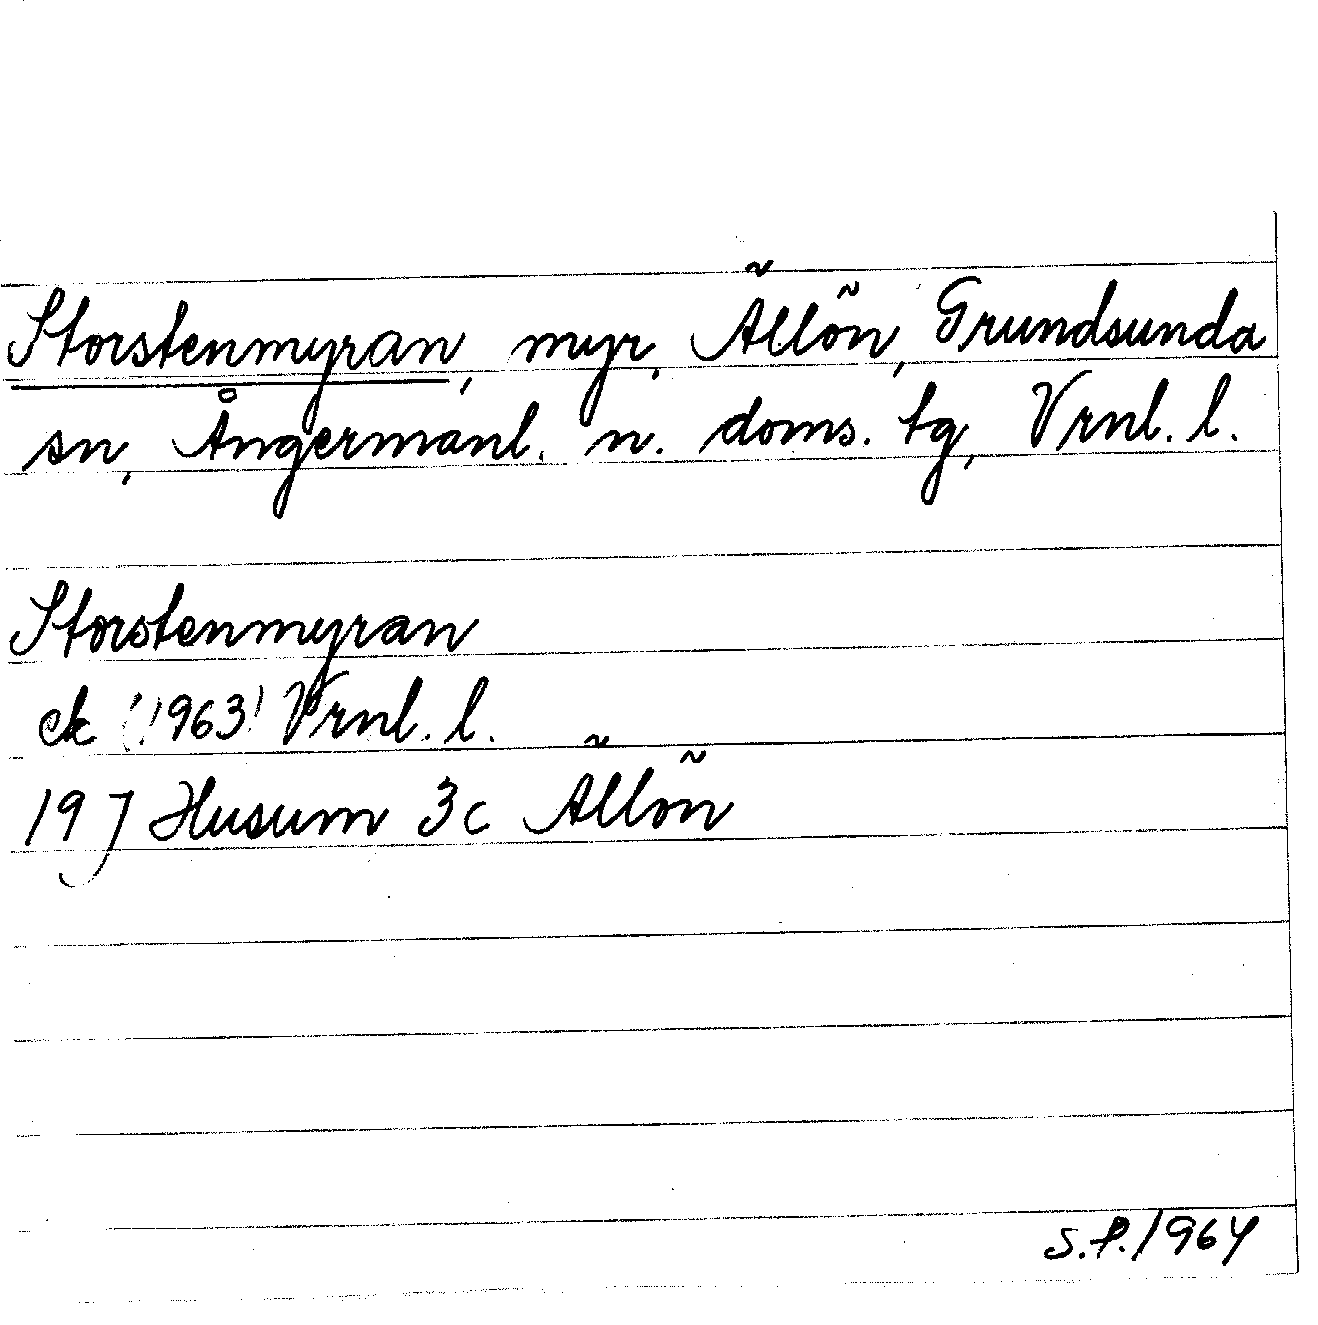 Storstenmyran, myr, Ällön, Grundsunda
sn, Ångermanl. n. doms. tg, Vrnl. l.
Storstenmyran
ek (1963) Vrnl. l.
19 J Husum 3c Ällön
S.P. 1964